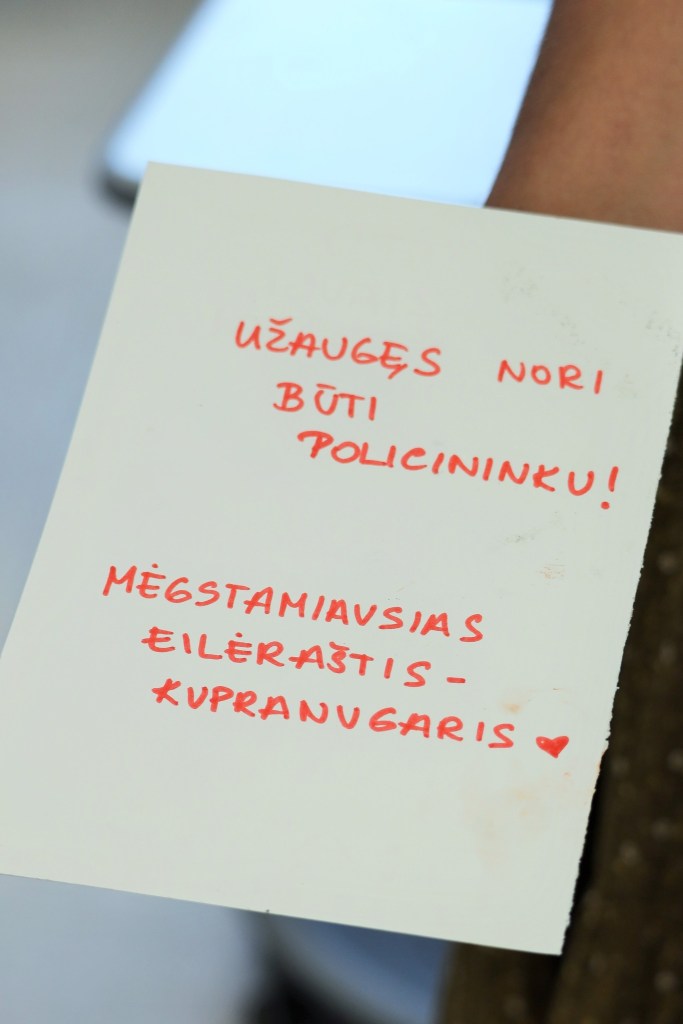 UŽAUGĘS NORI
BŪTI
POLICININKU!
MĖGSTAMIAUSIAS
EILĖRAŠTIS -
KUPRANUGARIS ♥